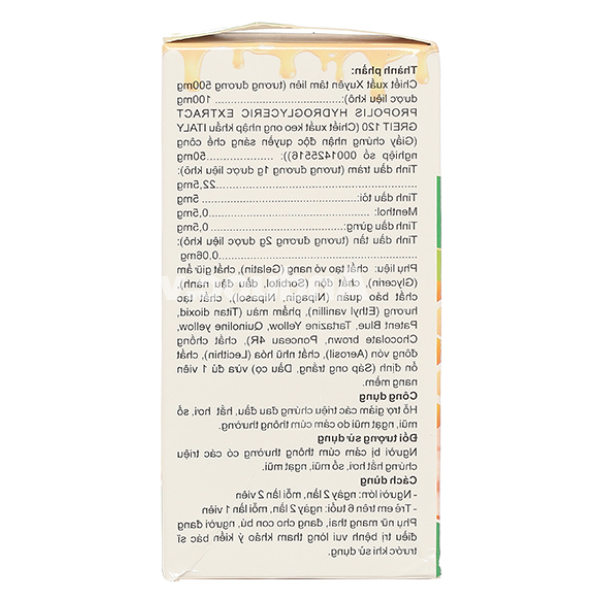 Thành phần:
Chiết xuất Xuyên tâm liên (tương đương 500mg
dược liệu khô):........................ 100mg
PROPOLIS HYDROGLYCERIC EXTRACT
GREIT 120 (Chiết xuất keo ong nhập khẩu ITALY
(Giấy chứng nhận độc quyền sáng chế công
nghiệp số 0001425516)):.................50mg
Tinh dầu tràm (tương đương 1g dược liệu khô):
........................................22,5mg
Tinh dầu tỏi:........................... 5mg
Menthol:................................0,5mg
Tinh dầu gừng:..........................0,5mg
Tinh dầu tần (tương đương 2g dược liệu khô):
........................................0,06mg
Phụ liệu: chất tạo vỏ nang (Gelatin), chất giữ ẩm
(Glycerin), chất độn (Sorbitol, dầu đậu nành),
chất bảo quản (Nipagin, Nipasol), chất tạo
hương (Ethyl vanillin), phẩm màu (Titan dioxid,
Patent Blue, Tartazine Yellow, Quinoline yellow,
Choccolate brown, Ponceau 4R), chất chống
đông vón (Aerosil), chất nhũ hóa (Lecithin), chất
ổn định (Sáp ong trắng, Dầu cọ) vừa đủ 1 viên
nang mềm.
Công dụng
Hỗ trợ giảm các triệu chứng đau đầu, hắt hơi, sổ
mũi, ngạt mũi do cảm cúm thông thường.
Đối tượng sử dụng
Người bị cảm cúm thông thường có các triệu
chứng hắt hơi, sổ mũi, ngạt mũi.
Cách dùng
- Người lớn: ngày 2 lần, mỗi lần 2 viên
- Trẻ em trên 6 tuổi: ngày 2 lần, mỗi lần 1 viên
Phụ nữ mang thai, đang cho con bú, người đang
điều trị bệnh vui lòng tham khảo ý kiến bác sĩ
trước khi sử dụng.